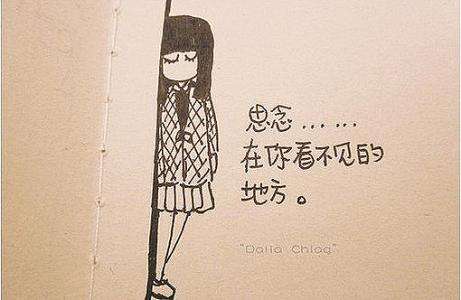 思念……
在你看不见的
地方。
"Dalla Chloq"